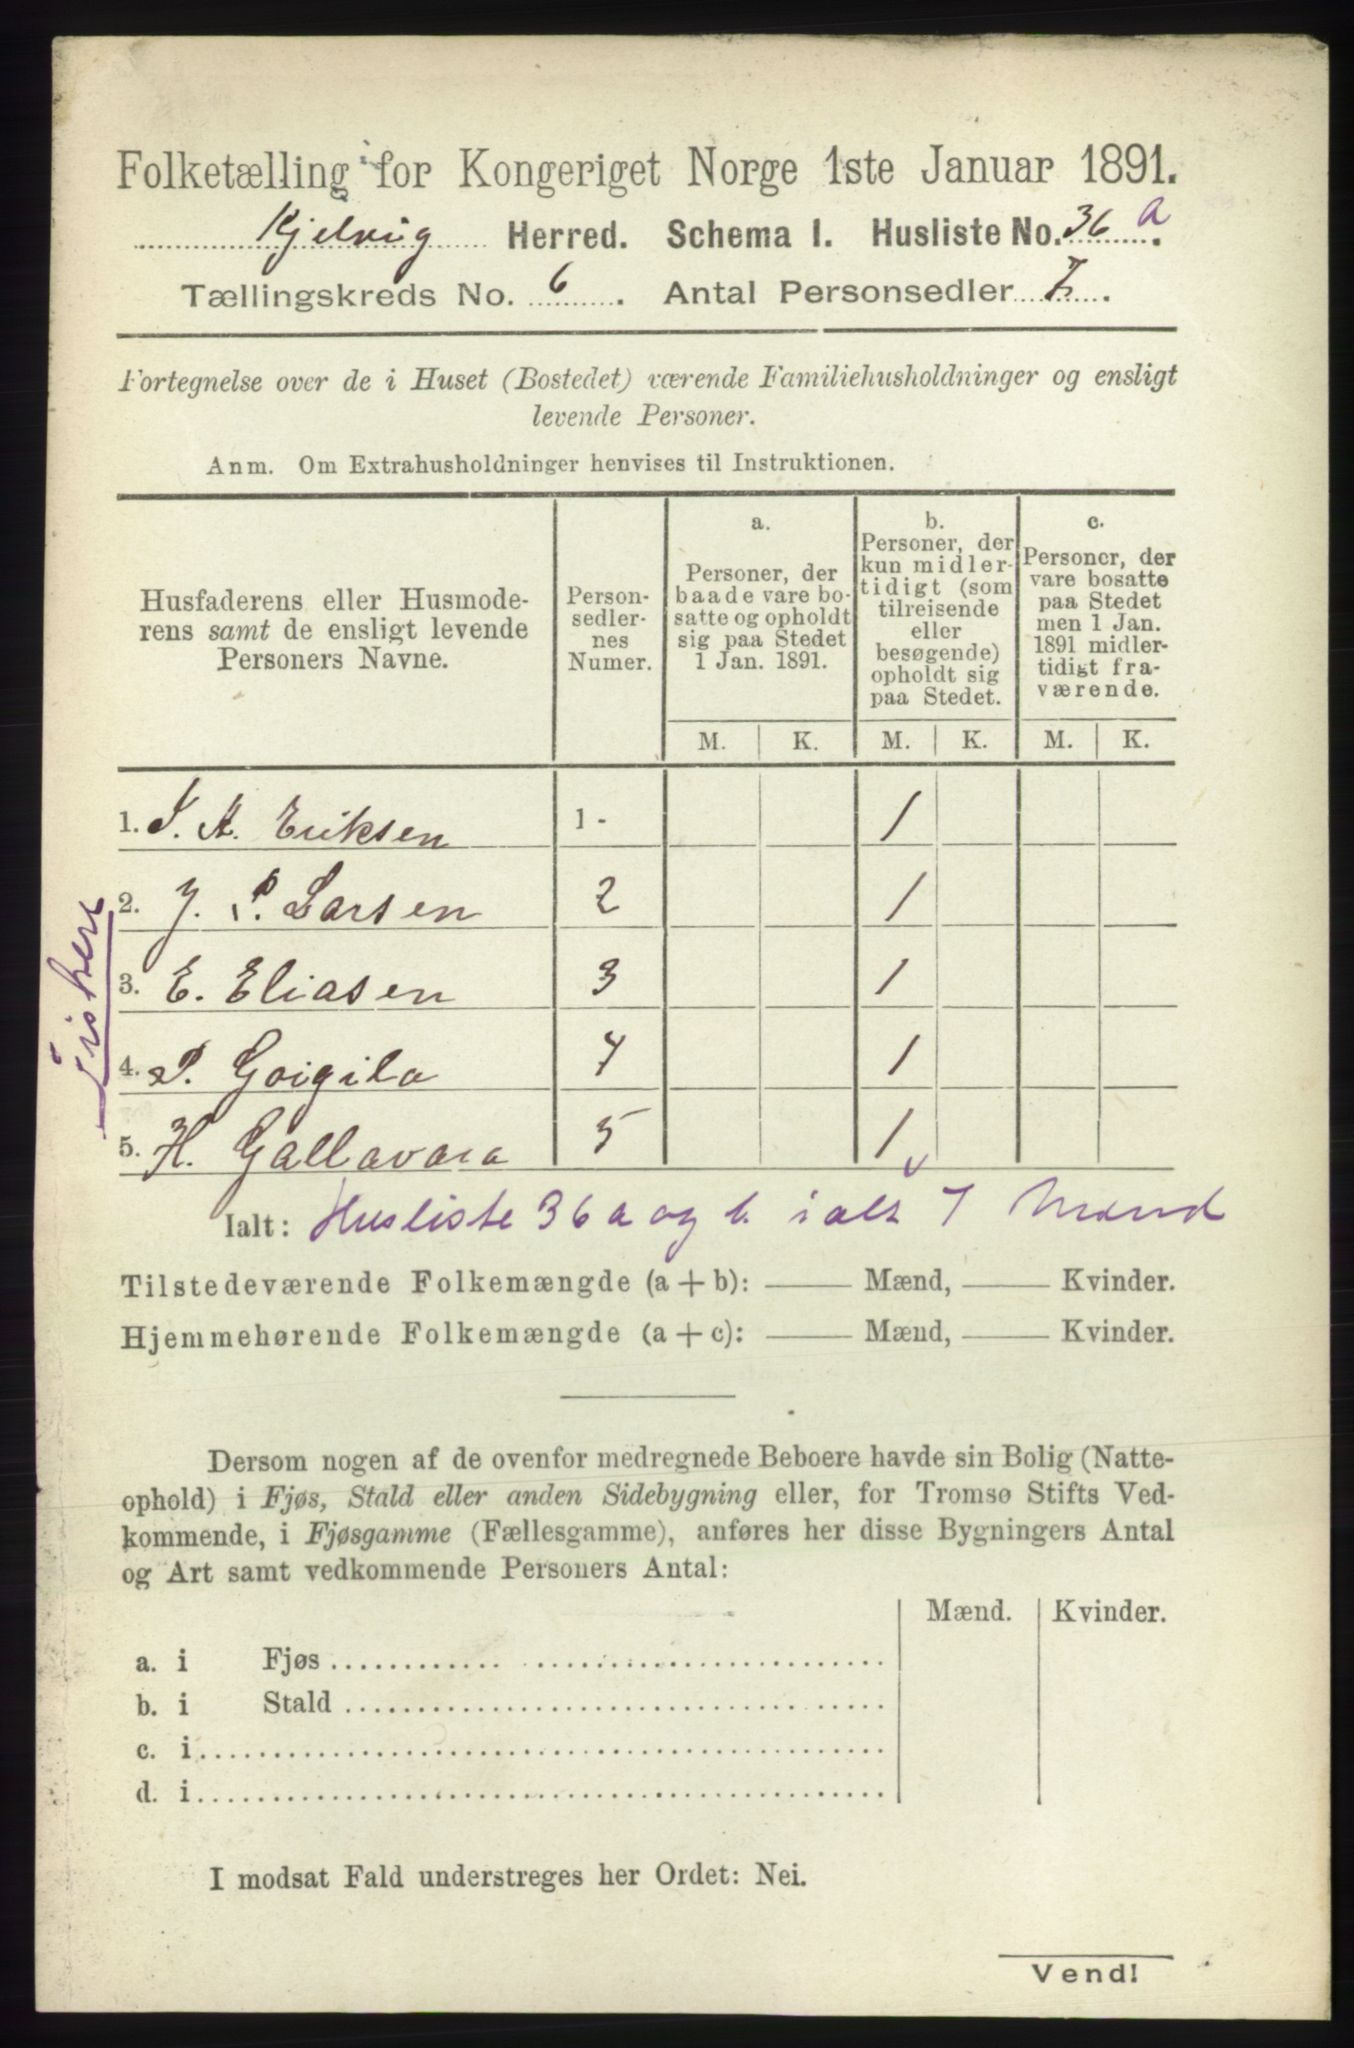 Folketælling for Kongeriget Norge 1ste Januar 1891.
Kjelvig Herred. Schema I. Husliste No. 36 a.
Tællingskreds No. 6. Antal Personsedler 7.
Fortegnelse over de i Huset (Bostedet) værende Familiehusholdninger og ensligt
levende Personer.
Anm. Om Extrahusholdninger henvises til Instruktionen.
Husfaderens eller Husmode-
rens samt de ensligt levende
Personers Navne.
Person-
sedler-
nes
Numer.
a.
Personer, der
baade vare bo-
satte og opholdt
sig paa Stedet
1 Jan. 1891.
b.
Personer, der
kun midler-
tidigt (som
tilreisende
eller
besøgende)
opholdt sig
paa Stedet.
c.
Personer, der
vare bosatte
paa Stedet
men 1 Jan.
1891 midler-
tidigt fra-
værende.
M. K. M. K. M. K.
Fiskere
1. I. A. Eriksen 1 - 1
2. J. P. Larsen 2 1
3. E. Eliasen 3 1
4. P. Goigila 4 1
5. H. Gallavara 5 1
Ialt: Husliste 36 a og b. ialt 7 Mænd
Tilstedeværende Folkemængde (a + b): —— Mænd, —— Kvinder.
Hjemmehørende Folkemængde (a + c): —— Mænd, —— Kvinder.
Dersom nogen af de ovenfor medregnede Beboere havde sin Bolig (Natte-
ophold) i Fjøs, Stald eller anden Sidebygning eller, for Tromsø Stifts Ved-
kommende, i Fjøsgamme (Fællesgamme), anføres her disse Bygningers Antal
og Art samt vedkommende Personers Antal:
Mænd. Kvinder.
a. i Fjøs
b. i Stald
c. i
d. i
I modsat Fald understreges her Ordet: Nei.
Vend!